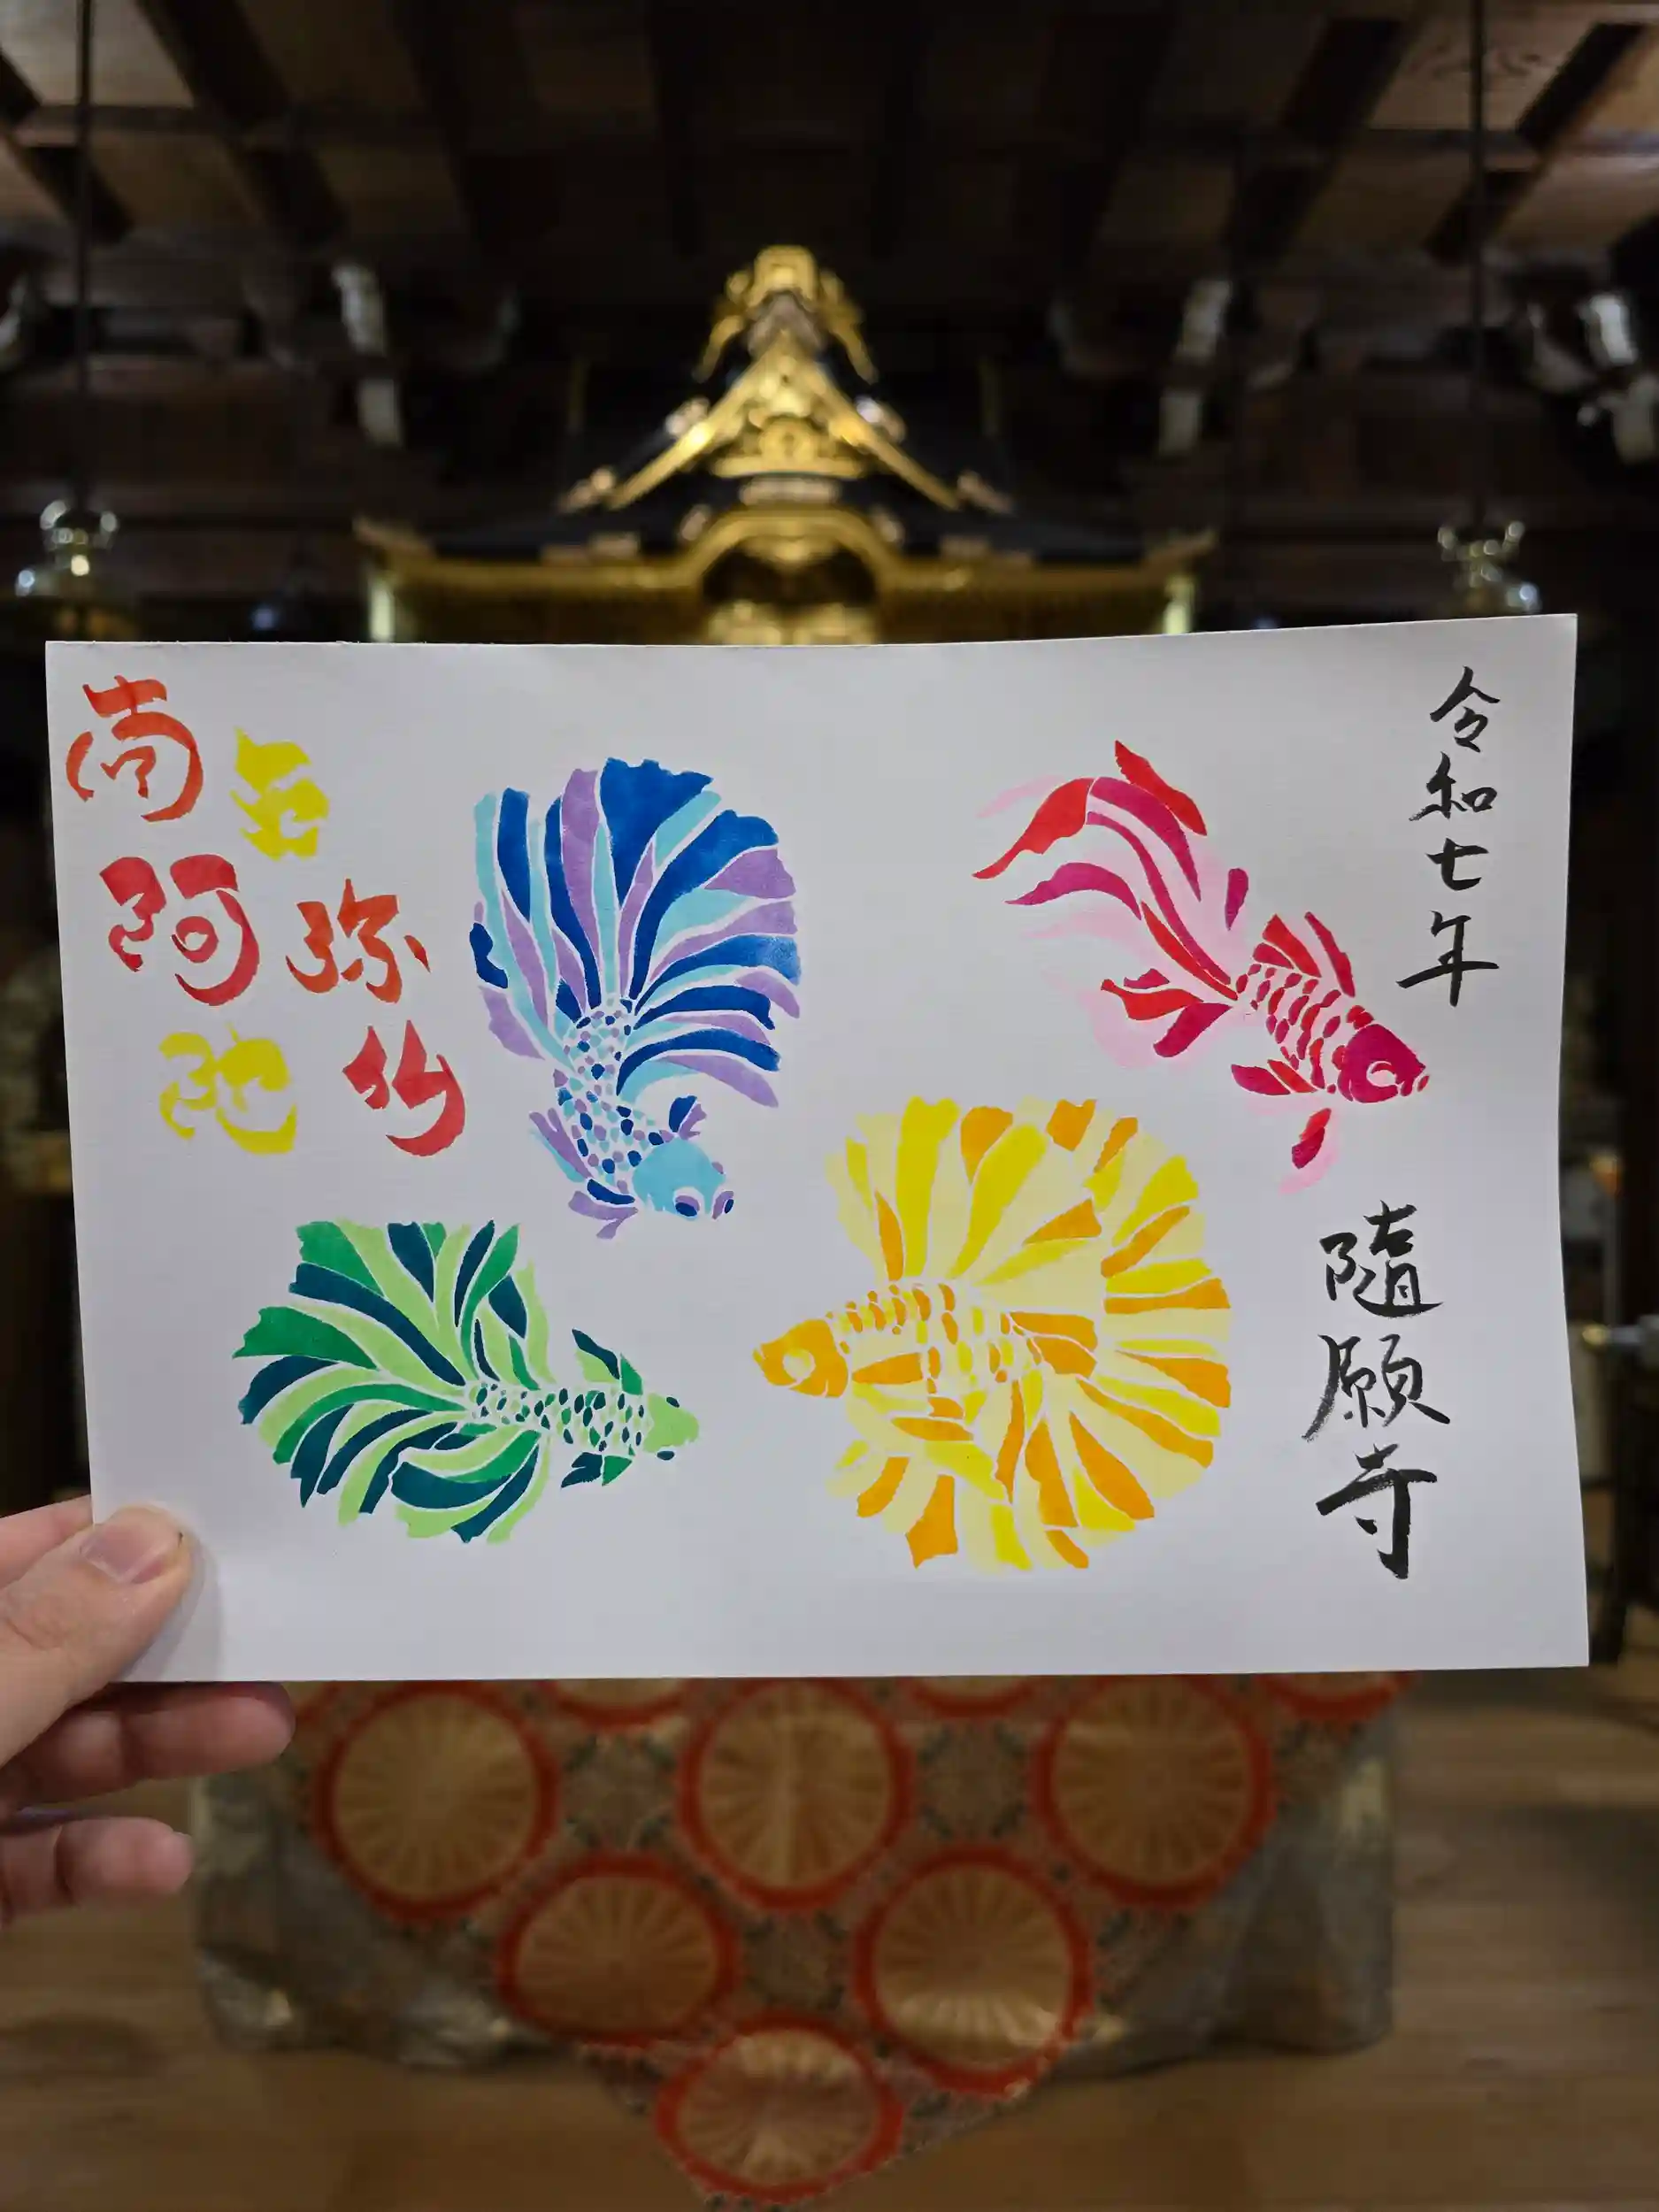 令和七年
隨願寺
南無
阿弥
陀仏